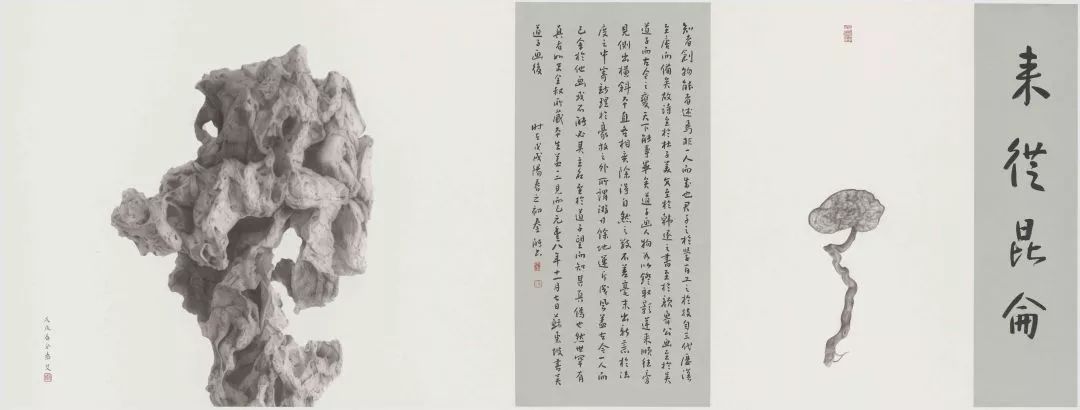 来從昆侖
知者創物能者述焉非一人而成也君子之於學百工之於技自三代歷漢
至唐而備矣故詩至於杜子美文至於韓退之書至於顏魯公画至於吳
道子而古今之變天下能事畢矣道子画人物如以燈取影逆來順往旁
見側出橫斜平直各相乘除得自然之數不差毫末出新意於法
度之中寄妙理於豪放之外所謂游刃餘地運斤成風蓋古今一人而
已余於他画或不能必其主名至於道子望而知其真偽也然世罕有
真者如史全叔所藏平生蓋一二見而已元豐八年十一月七日蘇東坡書吳
道子画後
时在戊戌陽春之初